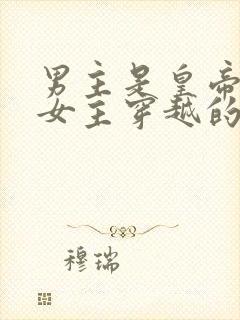 男主是皇帝
女主穿越的
穆瑞